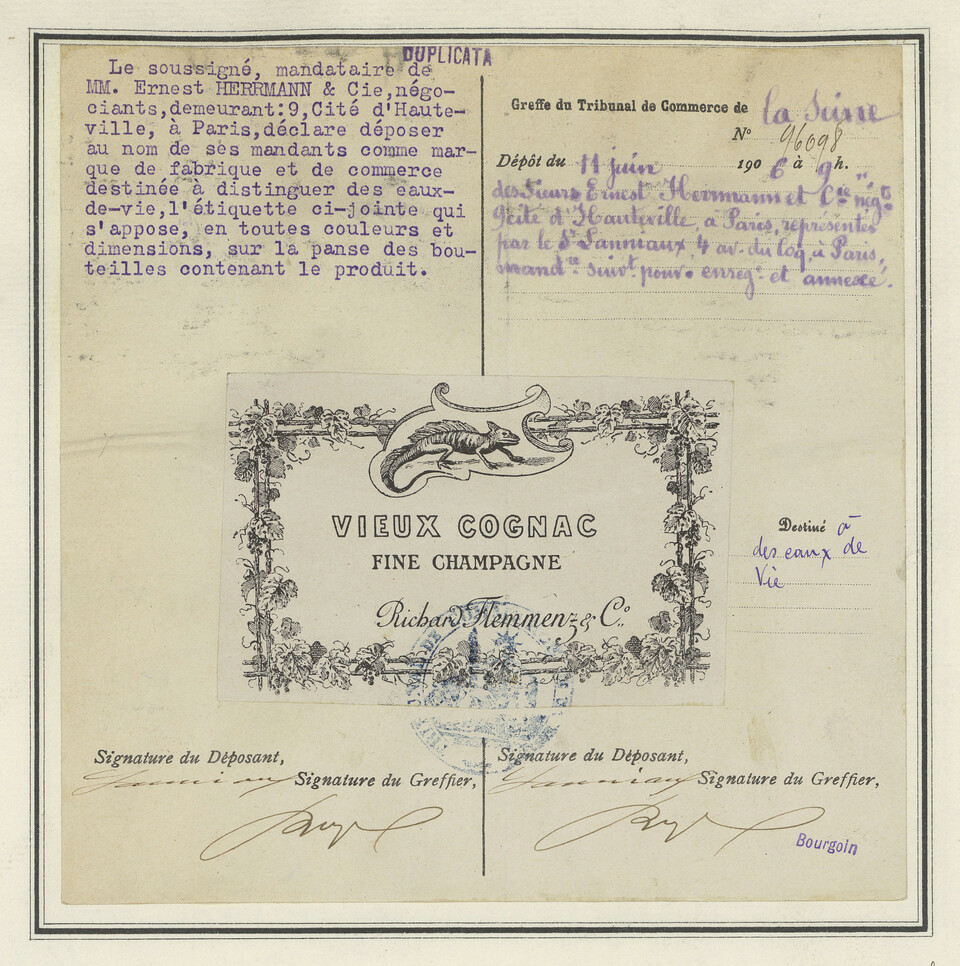 DUPLICATA
Le soussigné, mandataire de
MM. Ernest HERRMANN & Cie,négo-
ciants,demeurant:9,Cité d'Haute-
ville, à Paris,déclare déposer
au nom de ses mandants comme mar-
que de fabrique et de commerce
destinée à distinguer des eaux-
de-vie,l'étiquette ci-jointe qui
s'appose, en toutes couleurs et
dimensions, sur la panse des bou-
teilles contenant le produit.
Greffe du Tribunal de Commerce de la Seine
N° 96098
Dépôt du 11 juin 1906 à 9 h. "
des Sieurs Ernest Herrmann et Cie négts
9 cité d'Hauteville, à Paris, représentés
par le Sr Lanniaux, 4 av. du Coq, à Paris,
mandre suivt pouvr enregé et annexé.
VIEUX COGNAC
FINE CHAMPAGNE
Richard Flemmenz & Co.
Destiné à
des eaux de
Vie
Signature du Déposant,
Lanniaux Signature du Greffier,
Signature du Déposant,
Lanniaux Signature du Greffier,
Bourgoin